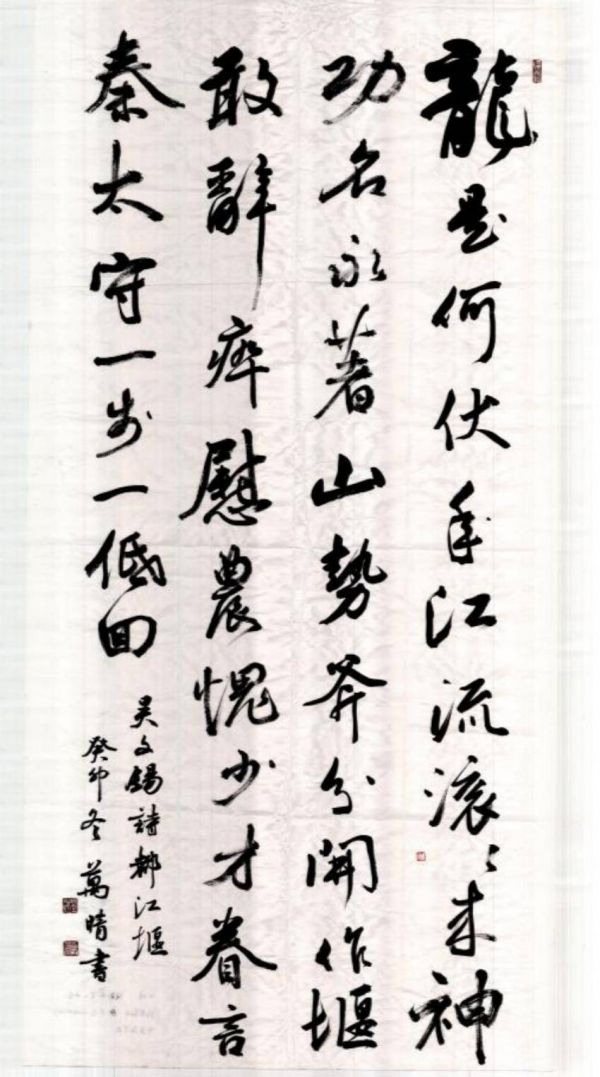 龍是何伏年江流滾〻来神
功名永著山勢斧分開作堰
敢辭瘁慰農愧少才眷言
秦太守一步一低回
吴文錫詩都江堰
癸卯冬萬晴書